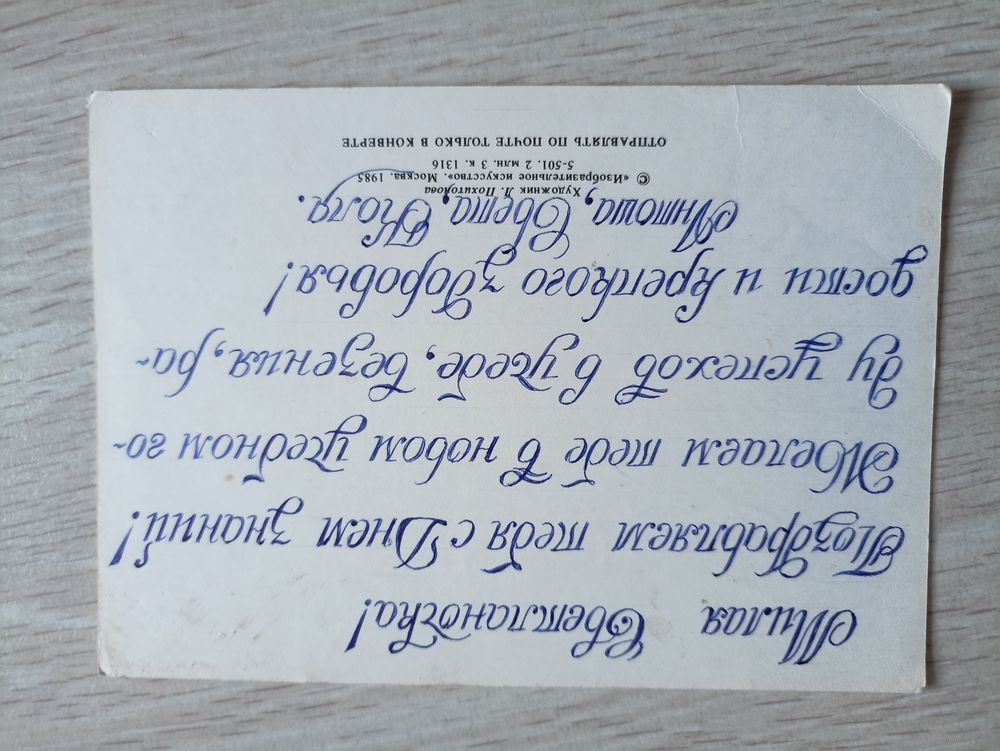 Милая Светланочка!
Поздравляем тебя с Днем знаний!
Желаем тебе в новом учебном го-
ду успехов в учебе, везения, ра-
дости и крепкого здоровья!
Антоша, Света, Коля.
Художник Л. Похитонова
© «Изобразительное искусство». Москва. 1985
5-501. 2 млн. З к. 1316
ОТПРАВЛЯТЬ ПО ПОЧТЕ ТОЛЬКО В КОНВЕРТЕ